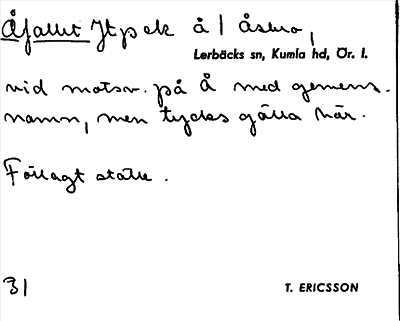 Åfallet Ytp ek å 1 Åsbro,
Lerbäcks sn, Kumla hd, Ör. l.
vid motsv. på Å med gemens.
namn, men tycks gälla här.
Förlagt ställe.
31
T. ERICSSON